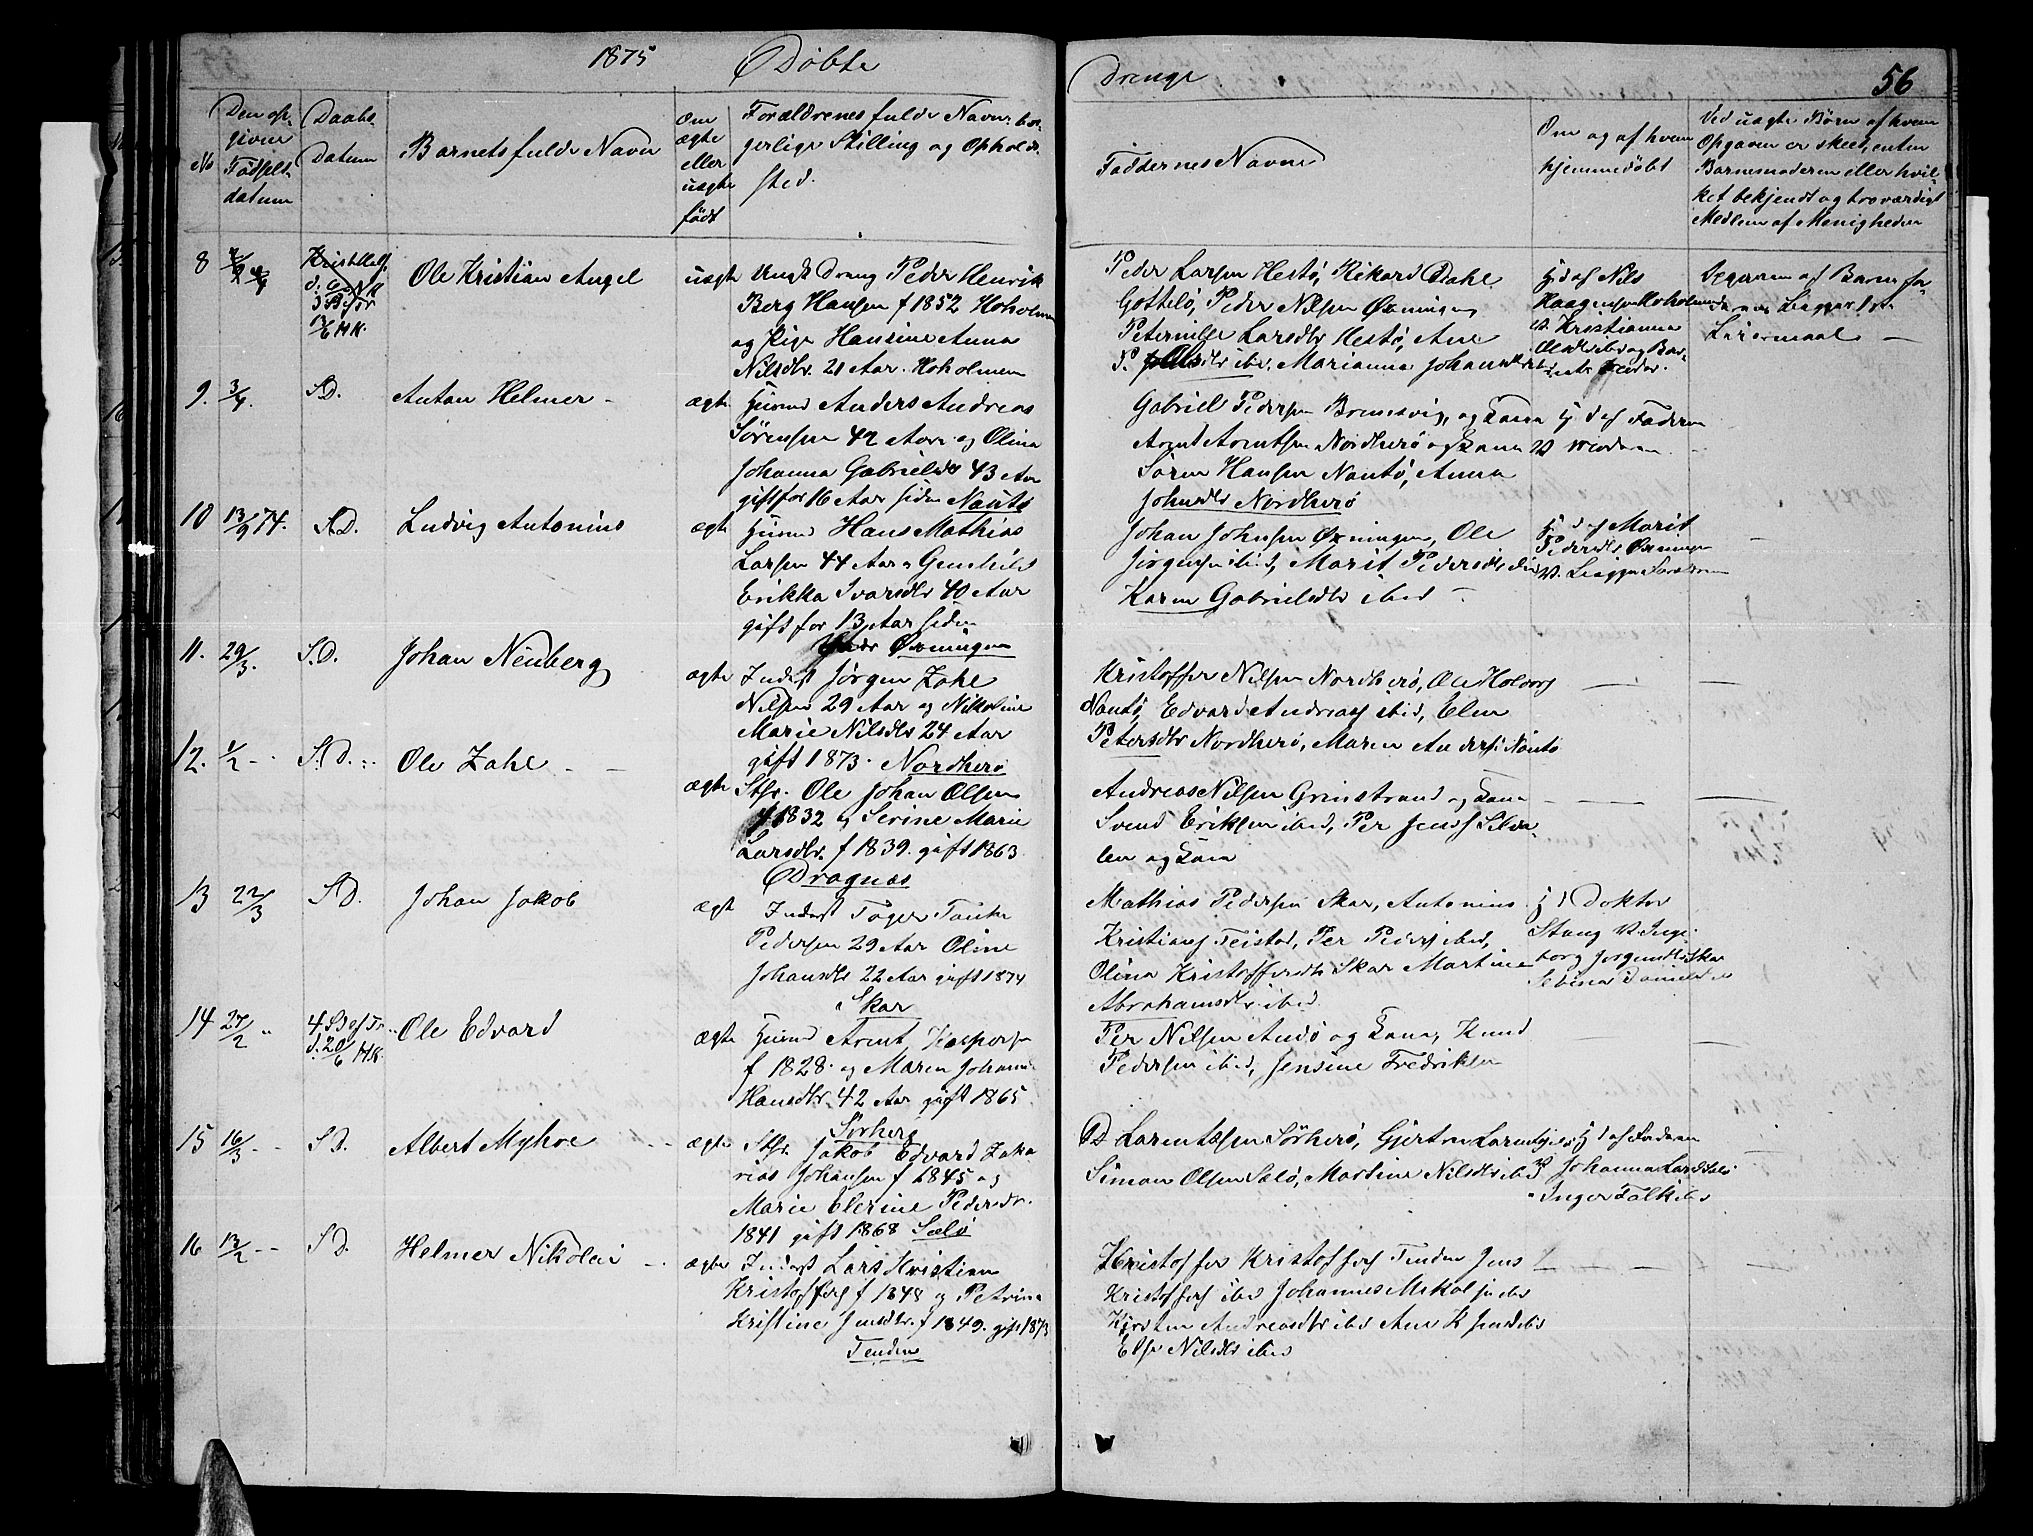 1875 Döbte
Drenge 56
No
Den op-
given
Födsels-
datum
Daabs-
Datum
Barnets fulde Navn
Om
ægte
eller
uægte
födt
Forældrenes fulde Navne bor-
gerlige Stilling og Opholds-
sted.
Faddernes Navne
Om og af hvem
hjemmedöbt
Ved uægte Börn af hvem
Opgaven er skeet, enten
Barnemoderen eller hvil-
ket bekjendt og troværdigt
Medlem af Menigheden
8
Ole Kristian Angel
uægte
Ungk Dreng Peder Henrik
Berg Hansen f 1852 Hoholmen
og Pige Hansine Anna
Nilsdtr. 21 Aar. Hoholmen
Peder Larsen Hestö, Rikard Dahl
Gottelö, Peder Nilsen Öxningen
Peternille Larsdtr Hestö, Ane
ibd. Marianna Johansdtr
hj. d af Nils
Haagensen Hoholmen
Kristianna
9. 3/4. S.D. Anton Helmer -
ægte
Husmd Anders Andreas
Sörensen 42 Aar og Olina
Johanna Gabrielsdtr 43 Aar
gift for 16 Aar siden Nautö
Gabriel Pedersen Bremsvig, og Kona
Arnt Arntsen Nordherö og Kona
Sören Hansen Nautö, Anna
Johnsdtr Nordherö
hj. d af Faderen
10 13/9 74. S.D. Ludvig Antonius
ægte
Husmd Hans Mathias
Larsen 44 Aar og Gunhild
Erikka Ivarsdtr 40 Aar
gift for 13 Aar siden
Öxningen
Johan Johnsen Öxningen, Ole
Jörgensen ibid, Marit Pedersdtr ibid
Karen Gabrielsdtr ibid -
hj. d af Marit
Pedersdtr Öxningen
11. 29/3. S.D. Johan Neuberg
ægte
Inderst Jörgen Zahl
Nilsen 29 Aar og Nikoline
Marie Nilsdtr 24 Aar
gift 1873. Nordherö
Kristoffer Nilsen Nordherö, Ole Holvors
Nautö, Edvard Andreass ibid, Elen
Petersdtr Nordherö, Maren Anders. Nautö
12. 1/2 - S.D. Ole Zahl -
ægte
Stbr. Ole Johan Olsen
f 1832 og Serine Marie
Larsdtr. f 1839. gift 1863.
Dragnæs
Andreas Nilsen Grinstrand og Kona
Svend Eriksen ibid, Per Jenss Selvaa-
len og Kona
13 22/3 S.D. Johan Jakob
ægte
Inderst Töger
Pedersen 29 Aar Oline
Johansdtr 22 Aar gift 1874
Skar
Mathias Pedersen Skar, Antonius
Kristians Teistad, Per Peders ibid,
Olina Kristoffersdtr Skar Martine
Abrahamsdtr ibid
hj d Doktor
Stang
borg Jörgensdtr Skar
14 27/2 Ole Edvard
4 S.
d. 20/6 HK.
ægte
Husmd Arnt Kaspers
f 1828. og Maren Johanna
Hansdtr. 42 Aar gift 1865.
Sörherö
Per Nilsen Andö og Kona, Knud
Pedersen ibid, Jensine Fredriksen
15 16/3 - S D. Albert Myhre
ægte
Stbr. Jakob Edvard Zaka-
rias Johansen f 1845 og
Marie Elerine Pedersdr.
1841 gift 1868 Salö
Larentsen Sörherö, Gjertru
Simon Olsen Salö, Martine Nilsdtr ibid
hj d af Faderen
Johanna
Inger Falk ibid
16 13/2 - S D. Helmer Nikolai
ægte
Inderst Lars Kristian
Kristoffers f 1848 og Petrina
Kristine Jensdtr. f 1849. gift 1873
Tenden
Kristoffer Kristoffers Tenden Jens
Kristoffers ibid Johannes Mikal
Kirsten Andreasdtr ibid Ane K Jensd ibid
Else Nilsdtr ibid